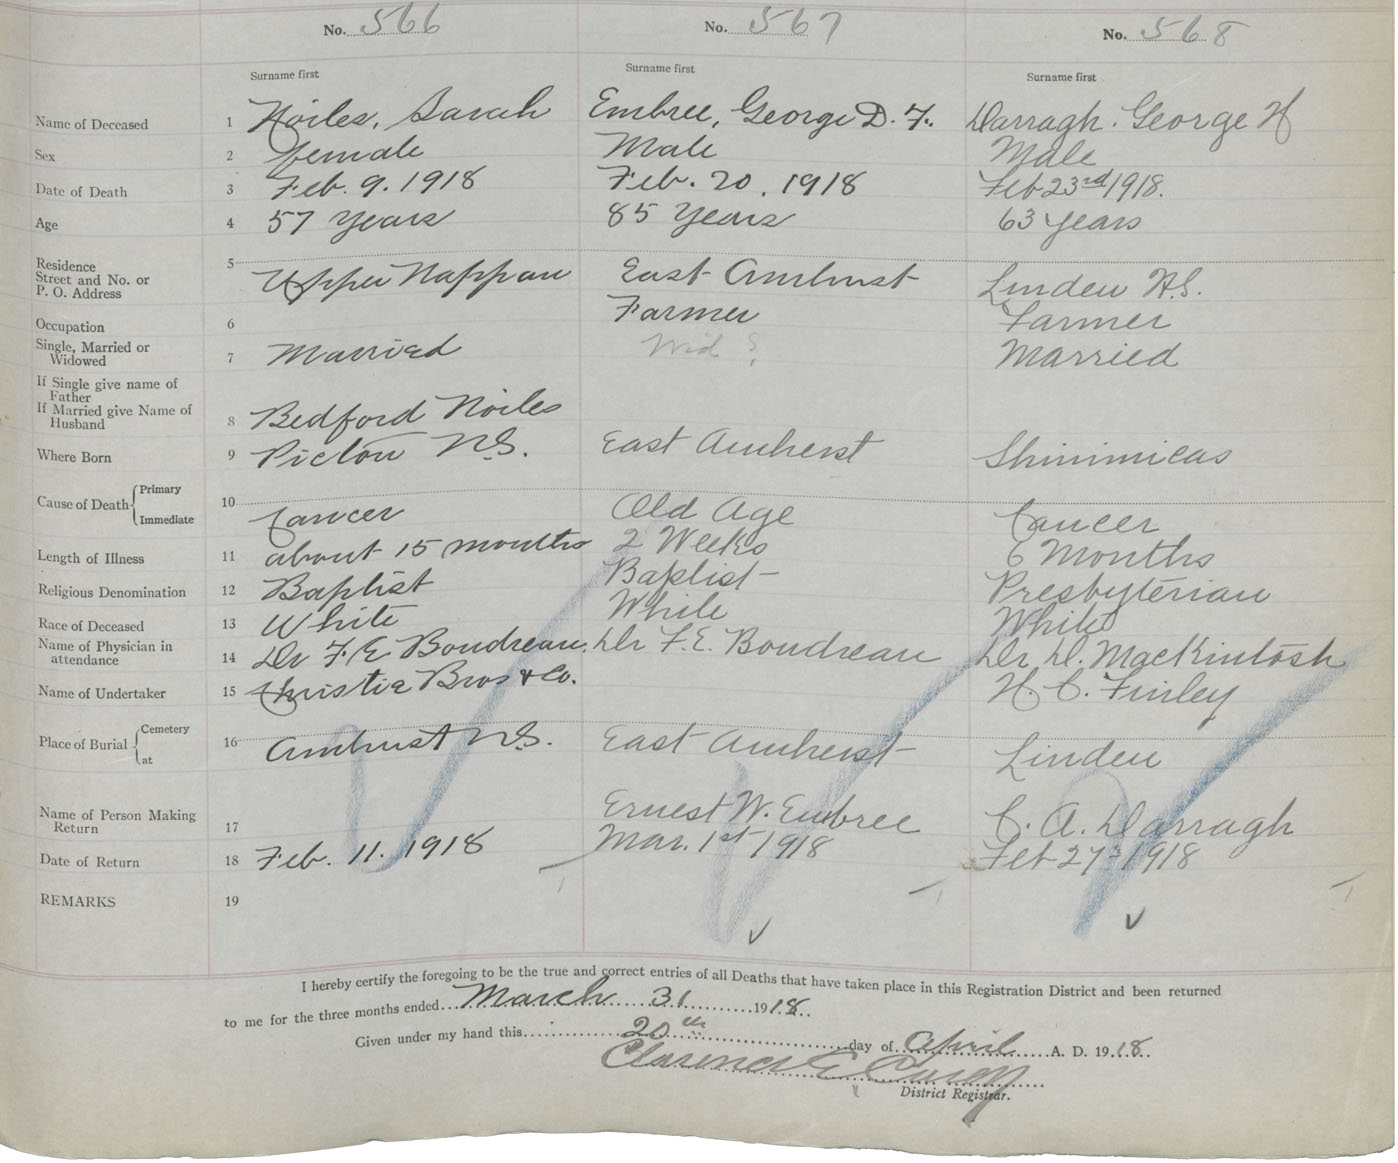 No. 566 No. 567 No. 568
Surname first Surname first Surname first
Name of Deceased 1 Noiles, Sarah Embree, George D. F. Darragh. George H
Sex 2 female Male Male
Date of Death 3 Feb. 9. 1918 Feb. 20. 1918 Feb 23rd 1918.
Age 4 57 Years 85 Years 63 Years
Residence
Street and No. or
P. O. Address 5 Upper Nappan East Amherst Linden N.S.
Occupation 6 Farmer Farmer
Single, Married or
Widowed 7 Married Wid ? Married
If Single give name of
Father
If Married give Name of
Husband 8 Bedford Noiles
Where Born 9 Pictou N.S. East Amherst Shinimicas
Cause of Death { Primary
Immediate 10 Cancer Old Age Cancer
Length of Illness 11 about 15 months 2 Weeks 6 Months
Religious Denomination 12 Baptist Baptist Presbyterian
Race of Deceased 13 White White White
Name of Physician in
attendance 14 Dr F. E Boudreau. Dr F. E. Boudreau Dr D. Mackintosh
Name of Undertaker 15 Christie Bros & Co. H. C. Finley
Place of Burial { Cemetery
at 16 Amherst N.S. East Amherst Linden
Name of Person Making
Return 17 Ernest W. Embree C. A. Darragh
Date of Return 18 Feb. 11. 1918 Mar. 1st 1918 Feb 27 1918
REMARKS 19
I hereby certify the foregoing to be the true and correct entries of all Deaths that have taken place in this Registration District and been returned
to me for the three months ended March 31 1918.
Given under my hand this 20th day of April A. D. 1918.
Clarence E
District Registrar.